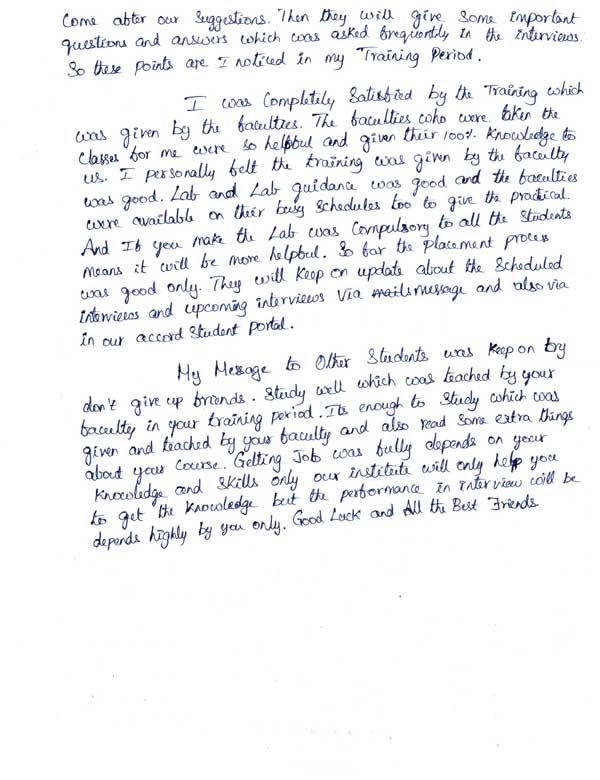 Come after our suggestions. Then they will give some important
questions and answers which was asked frequently in the interviews.
So these points are I noticed in my Training Period.
I was Completely Satisfied by the Training which
was given by the faculties. The faculties who were taken the
classes for me were so helpful and given their 100% Knowledge to
us. I personally felt the training was given by the faculty
was good. Lab and Lab guidance was good and the faculties
were available on their busy schedules too to give the practical.
And If you make the Lab was Compulsory to all the Students
means it will be more helpful. So far the placement process
was good only. They will keep on update about the Scheduled
interviews and upcoming interviews via mails message and also via
in our accord Student portal.
My Message to Other Students was Keep on try
don't give up friends. Study well which was teached by your
faculty in your training period. Its enough to Study which was
given and teached by your faculty and also read some extra things
about your course. Getting Job was fully depends on your
Knowledge and Skills only our institute will only help you
to get the Knowledge but the performance in interview will be
depends highly by you only. Good Luck and All the Best Friends